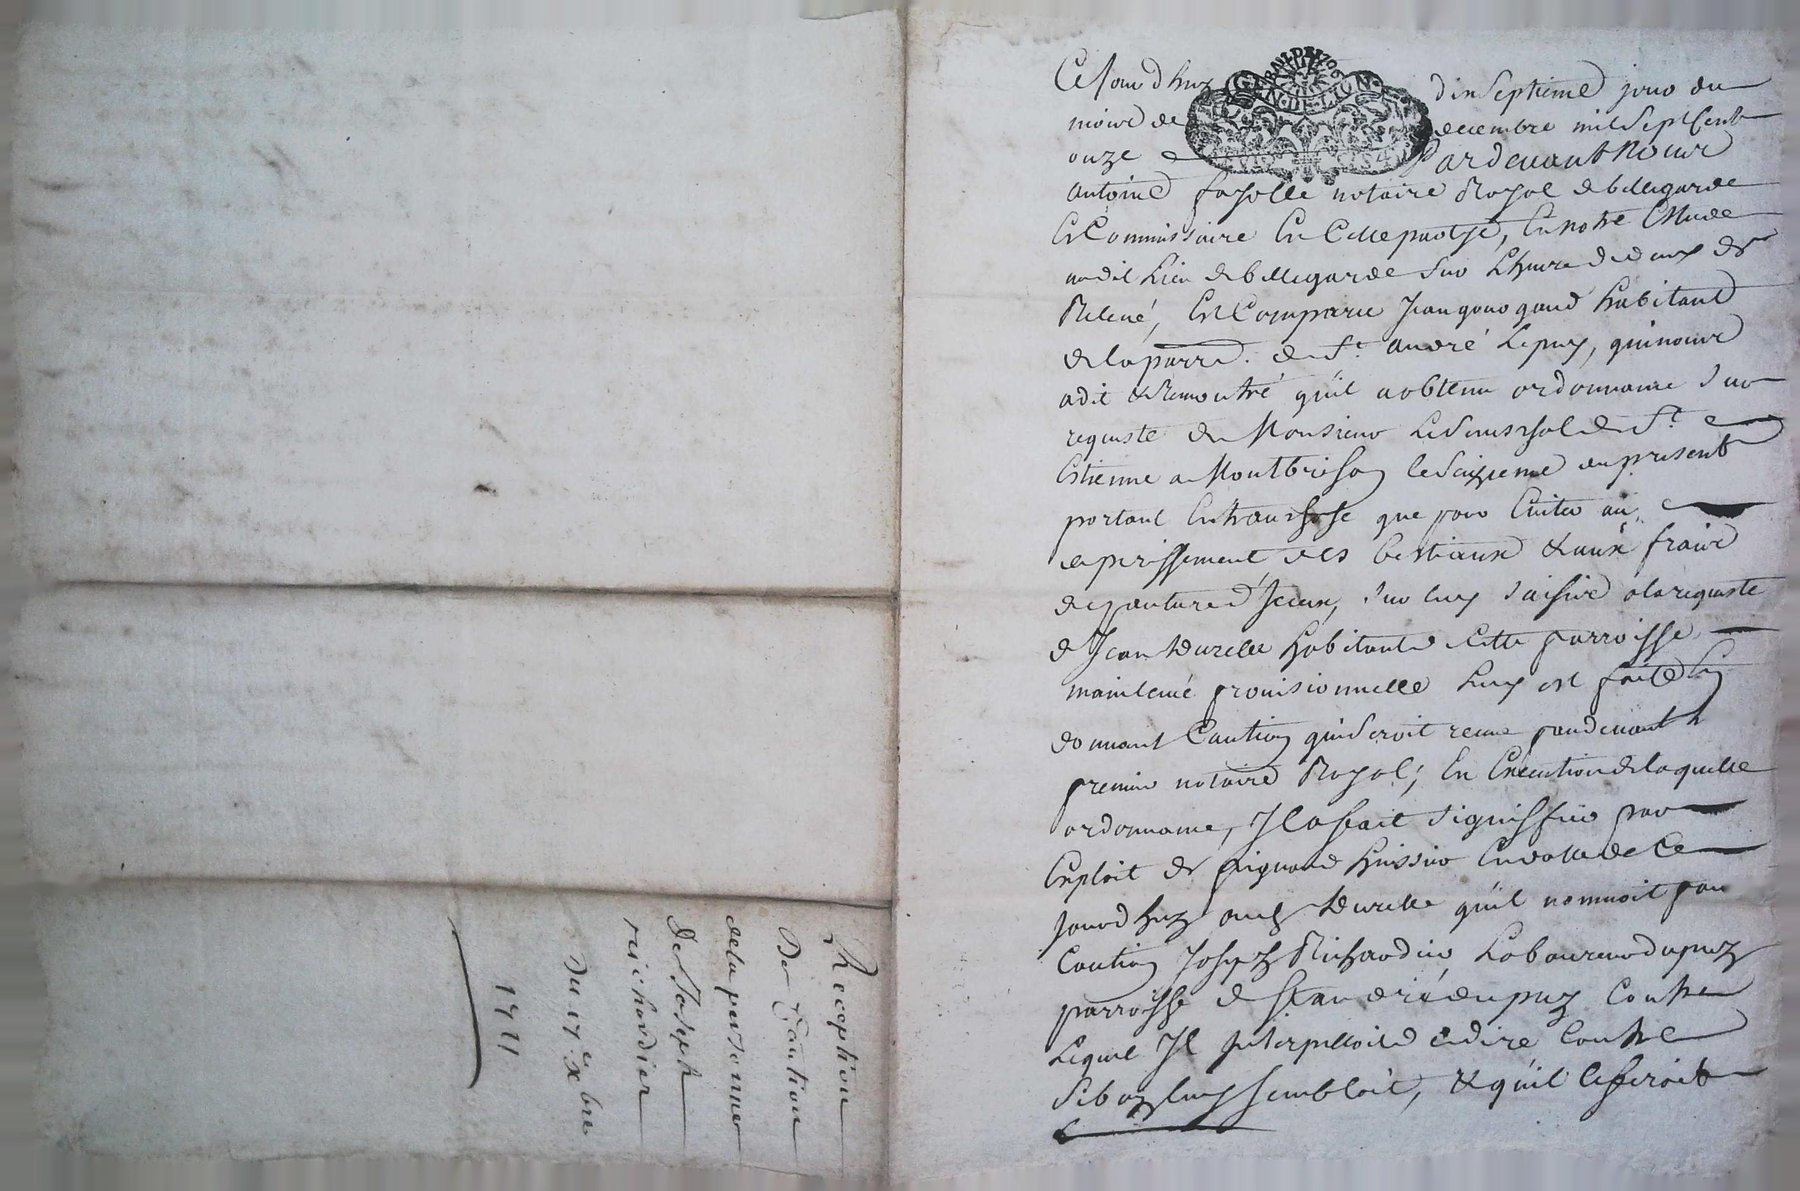 Cejourdhuy dixseptieme jour du
mois de decembre mil sept Cents
onze Pardevant Nous
antoine fayolle notaire Royal de bellegarde
Et Commissaire En Cette partye, En notre Estude
audit Lieu de bellegarde sur Lheure de deux de
Relevé, Est Comparu Jean gourgaud habitant
de la parre. de St. andré Lepuy, qui nous
a dit & Remontré qu'il a obtenu ordonnance sur
requeste de Monsieur Le Seneschal de St.
Estienne a Montbrison le Seizieme du present
portant Entrausse que pour Eviter au
deperissement des bestiaux & aux fraix
de pature d'Iceux, sur luy saisies a la requeste
de Jean Murelle habitant de Cette parroisse
mainlevé provisionnelle Luy est faite En
donnant Caution qui seroit receue pardevant
premier notaire Royal; En Execution de laquelle
ordonnance, Il a fait signiffier par
Exploit de huissier En datte de Ce
jourdhuy aud. Murelle qu'il nommoit pour
Caution Joseph Richardier Laboureur du puy
parroisse de St andré du puy Contre
Lequel Il Interpelloit de dire Contre
Si bon luy sembloit, & qu'il le feroit
Reception
De Caution
de la personne
De Joseph
richardier
Du 17e. Xbre
1711
GEN. DE. LION.